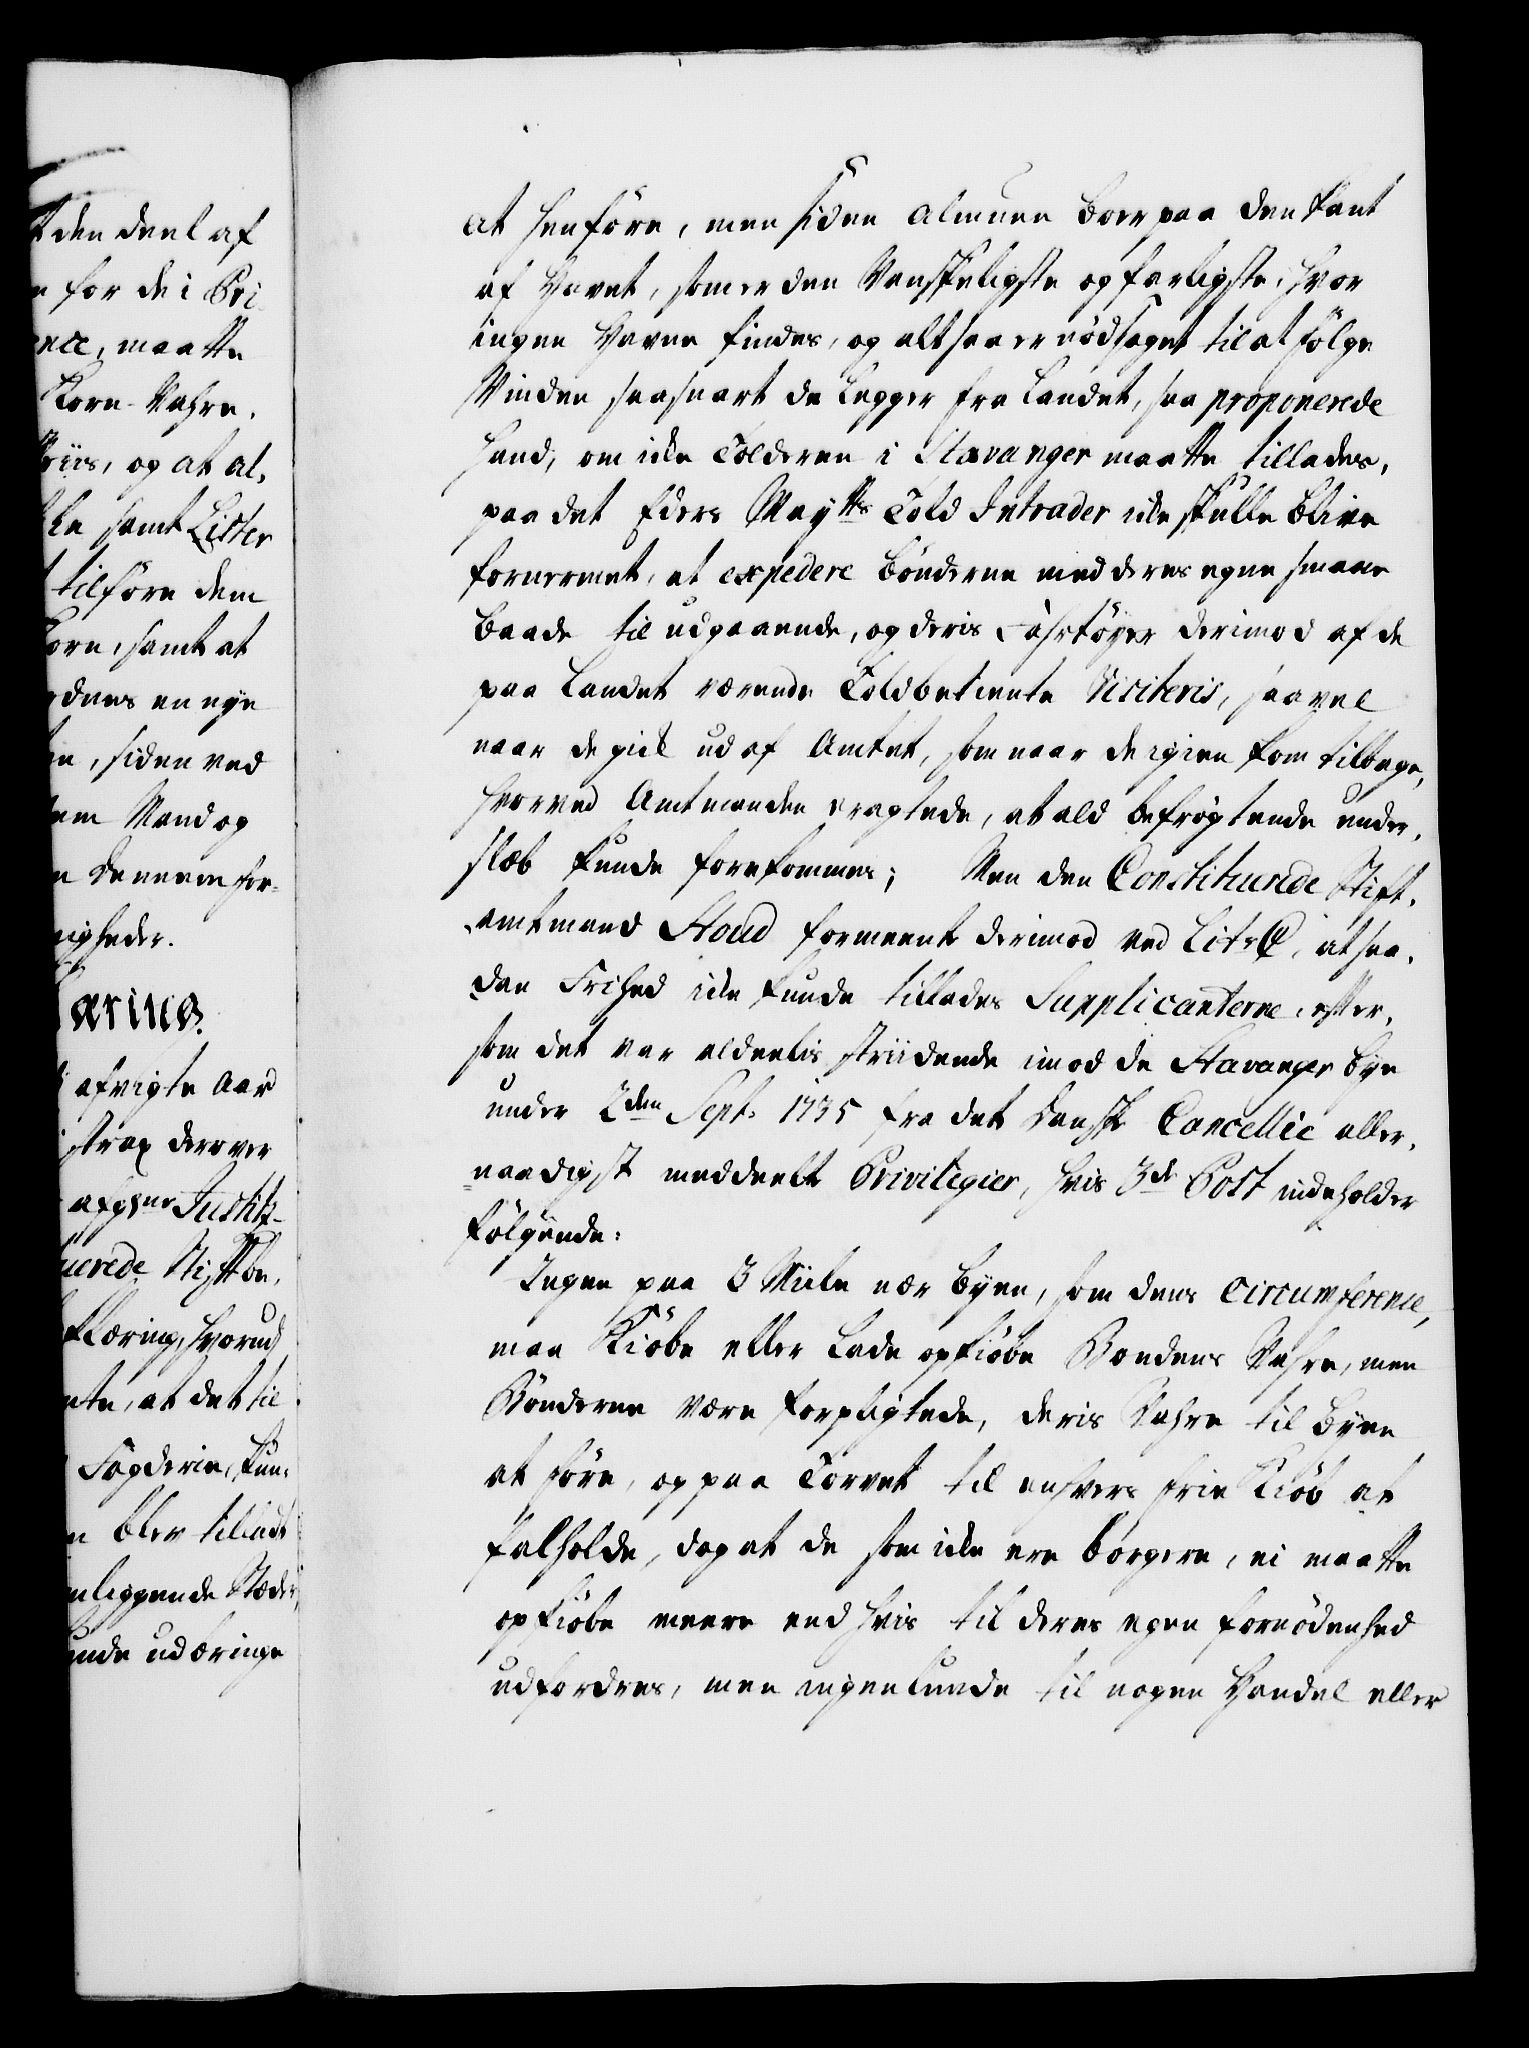 t den deel af
e for de i Pri
ence, maatte
Korn-Vahre,
Priis, og at al,
ke samt Lister
tilföre dem
Korn, samt at
rdnes en nye
en, siden ved
em Mand og
igheder.
æring.
afvigte Aar
strax derover
afghne Justitz-
uerede Stiftbe,
klæring, hvorudj
nte, at det til
Fogderie, kun,
n blev tilladt
nliggende Stæder,
unde udbringe
at henföre, men siden Almuen boer paa den Kant
af Havet, som er den Vanskeligste og farligste, hvor
ingen Havne findes, og altsaa er nödsaget til at fölge
Vinden saasnart de legger fra Landet, saa proponerede
hand, om icke Tolderen i Stavanger maatte tillades,
paa det Eders Maytts Told Intrader icke skulle blive
fornermet, at expedere Bönderne med deres egne smaae
Baade til udgaaende, og deris Fahrtöyer derimod af de
paa Landet værende Toldbetiente Visiteris, saavel
naar de gick ud af Amtet, som naar de igien kom tilbage,
hvorved Amtmanden eragtede, at ald befrögtende under,
slæb kunde forekommes; Men den Constituerede Stift,
amtmand Stoud formeente derimod ved Litr C, at saa,
dan Frihed icke kunde tillades Supplicanterne, efter,
som det var aldeelis striidende imod de Stavanger Bye
under 2den Sept. 1735 fra det Danske Cancellie aller,
naadigst meddeelte Privilegier, hvis 3de Post indeholder
fölgende:
Ingen paa 3 Miile nær Byen, som dens Circumference,
maa Kiöbe eller lade opkiöbe Bondens Vahre, men
Bönderne være forpligtede, deris Vahre til Byen
at före, og paa Torvet til enhvers frie Kiöb at
falholde, dog at de som icke ere Borgere, ei maatte
opkiöbe meere end hvis til deres egen fornödenhed
udfordres, men ingenlunde til nogen Handel eller